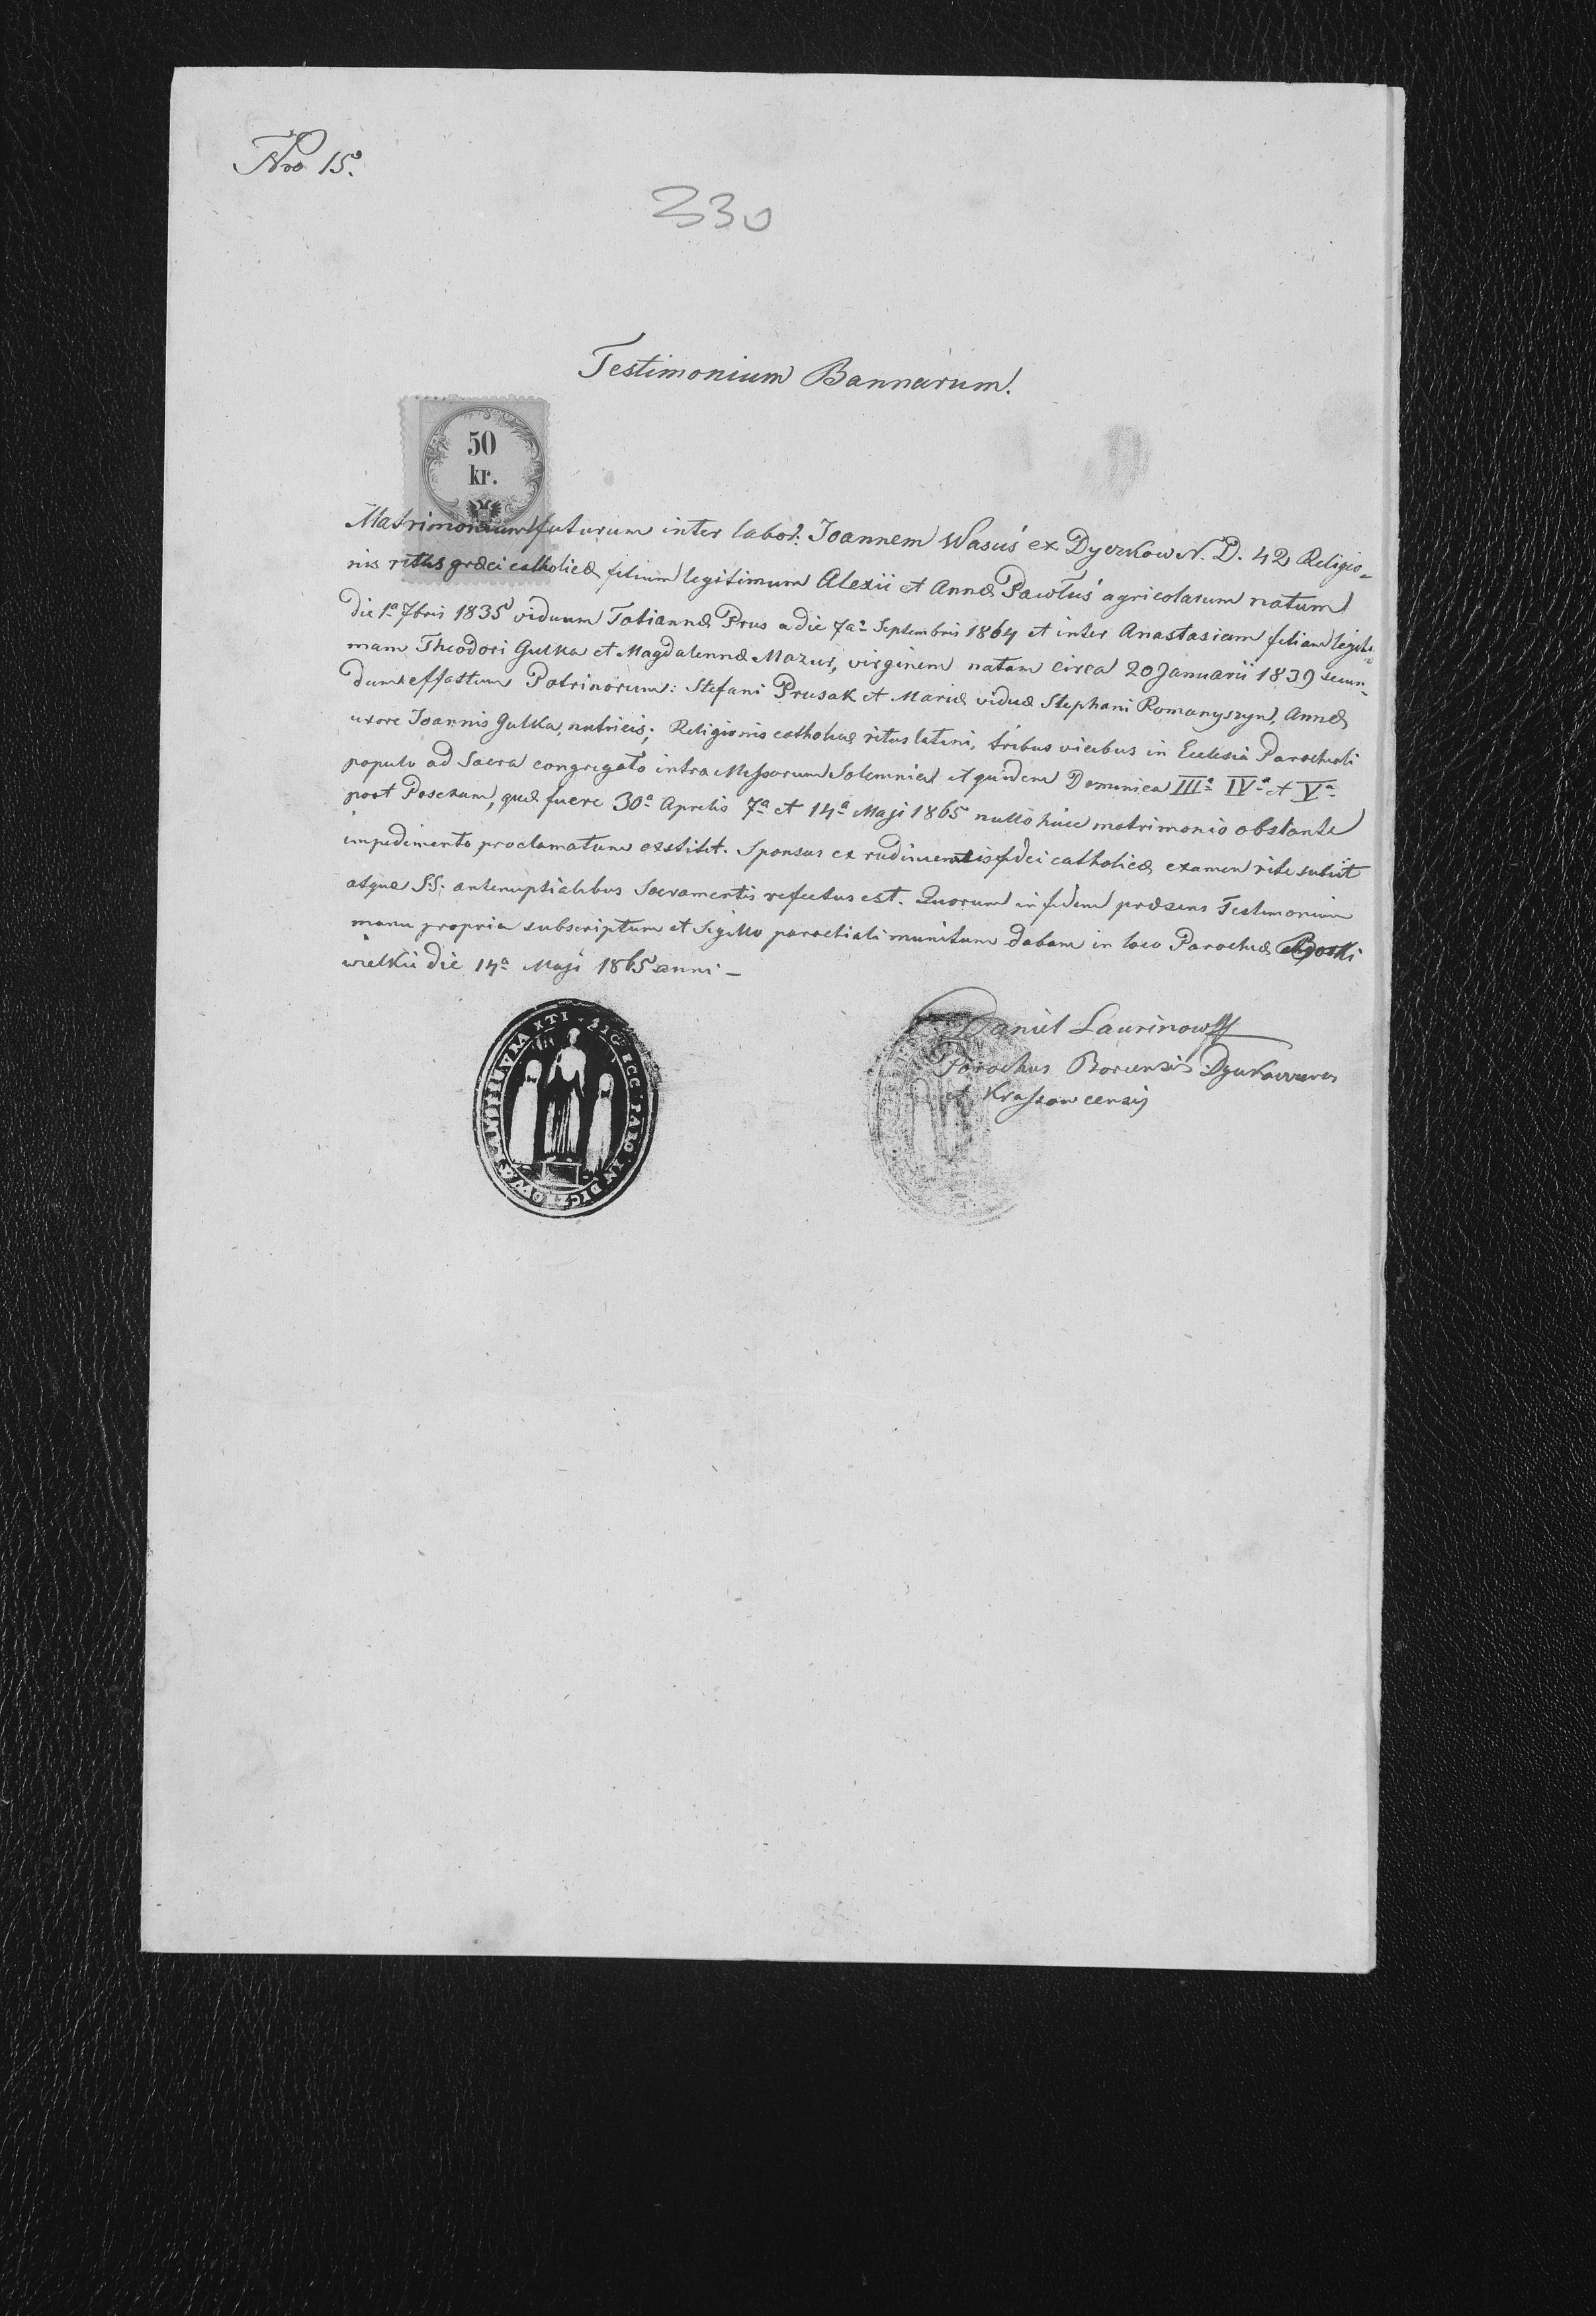 Nro 15.
330
Testimonium Bannarum.
50
kr.
Matrimonium futurum inter labor: Joannem Wasuś ex Dyczkow N. D. 42 Religio-
nis ritus græci catholicæ filium legitimum Alexii et Annæ Pawłuś agricolarum natum
die 1a 7bris 1835 viduum Tatiannæ Prus a die 7a Septembris 1864 et inter Anastasiam filiam legiti-
mam Theodori Gulka et Magdalennæ Mazur, virginem natam circa 20 Januarii 1839 secun-
dum effatum Patrinorum: Stefani Prusak et Mariæ viduæ Stephani Romanyszyn, Annæ
uxore Joannis Gulka, nutricis; Religionis catholicæ ritus latini, tribus vicibus in Ecclesia Parochiali
populo ad Sacra congregato intra Missarum Solemnia et quidem Dominica IIIa IVa et Va
post Pascham, quæ fuere 30a Aprilis 7a et 14a Maji 1865 nullo huic matrimonio obstante
impedimento proclamatum exstitit. Sponsus ex rudimentis fidei catholicæ examen rite subiit
atque S.S. antenuptialibus Sacramentis refectus est. Quorum in fidem præsens Testimonium
manu propria subscriptum et Sigillo parochiali munitum dabam in loco Parochiæ Borki
wielkii die 14a Maji 1865 anni –
Daniel Laurinowski
Parochus Borcensis
et Krassowcensis
SIG ECC PARO IN DICZKOW